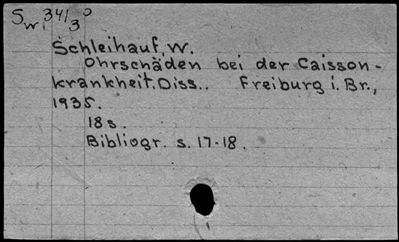 S 34/3 0
w i
Schleihauf, W.
Ohrschäden bei der Caisson-
krankheit. Diss.. Freiburg i. Br.,
1935.
18 s.
Bibliogr. s. 17-18.